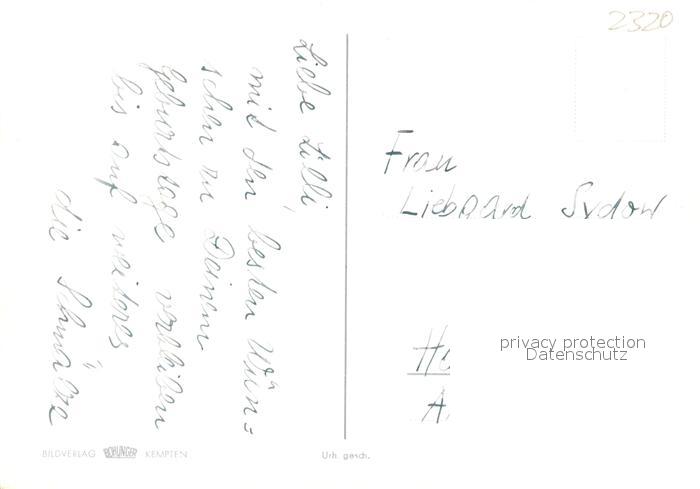 2320
Liebe Lilli,
mit den besten Wün=
schen zu Deinem
Geburtstage verbleiben
bis auf weiteres
die
Frau
Liebgard Sydow
Ho
A.
privacy protection
Datenschutz
BILDVERLAG BOHUNGER KEMPTEN
Urh. gesch.